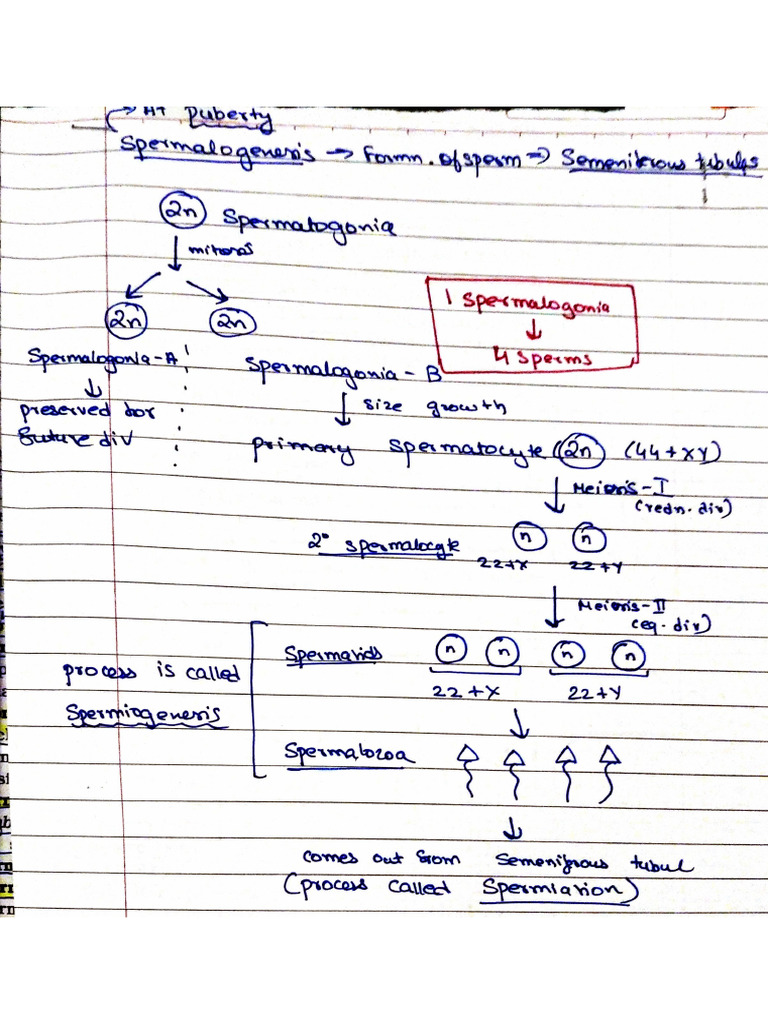 → At puberty
Spermatogenesis → Formn. of sperm ⇒ Semenifrous tubules
2n Spermatogonia
↓ mitosis
2n 2n
1 Spermatogonia
↓
4 Sperms
Spermatogonia-A
Spermatogonia - B
↓
↓ size growth
preserved for
future div
primary spermatocyte (2n) (44+XY)
↓ Meiosis-I
(redn. div)
2° spermatocyte n n
22+X 22+Y
↓ Meiosis-II
(eq. div)
Spermatids n n n n
process is called
22+X 22+Y
Spermiogenesis
↓
Spermatozoa
↓
comes out from semenifrous tubul
(process called Spermiation)